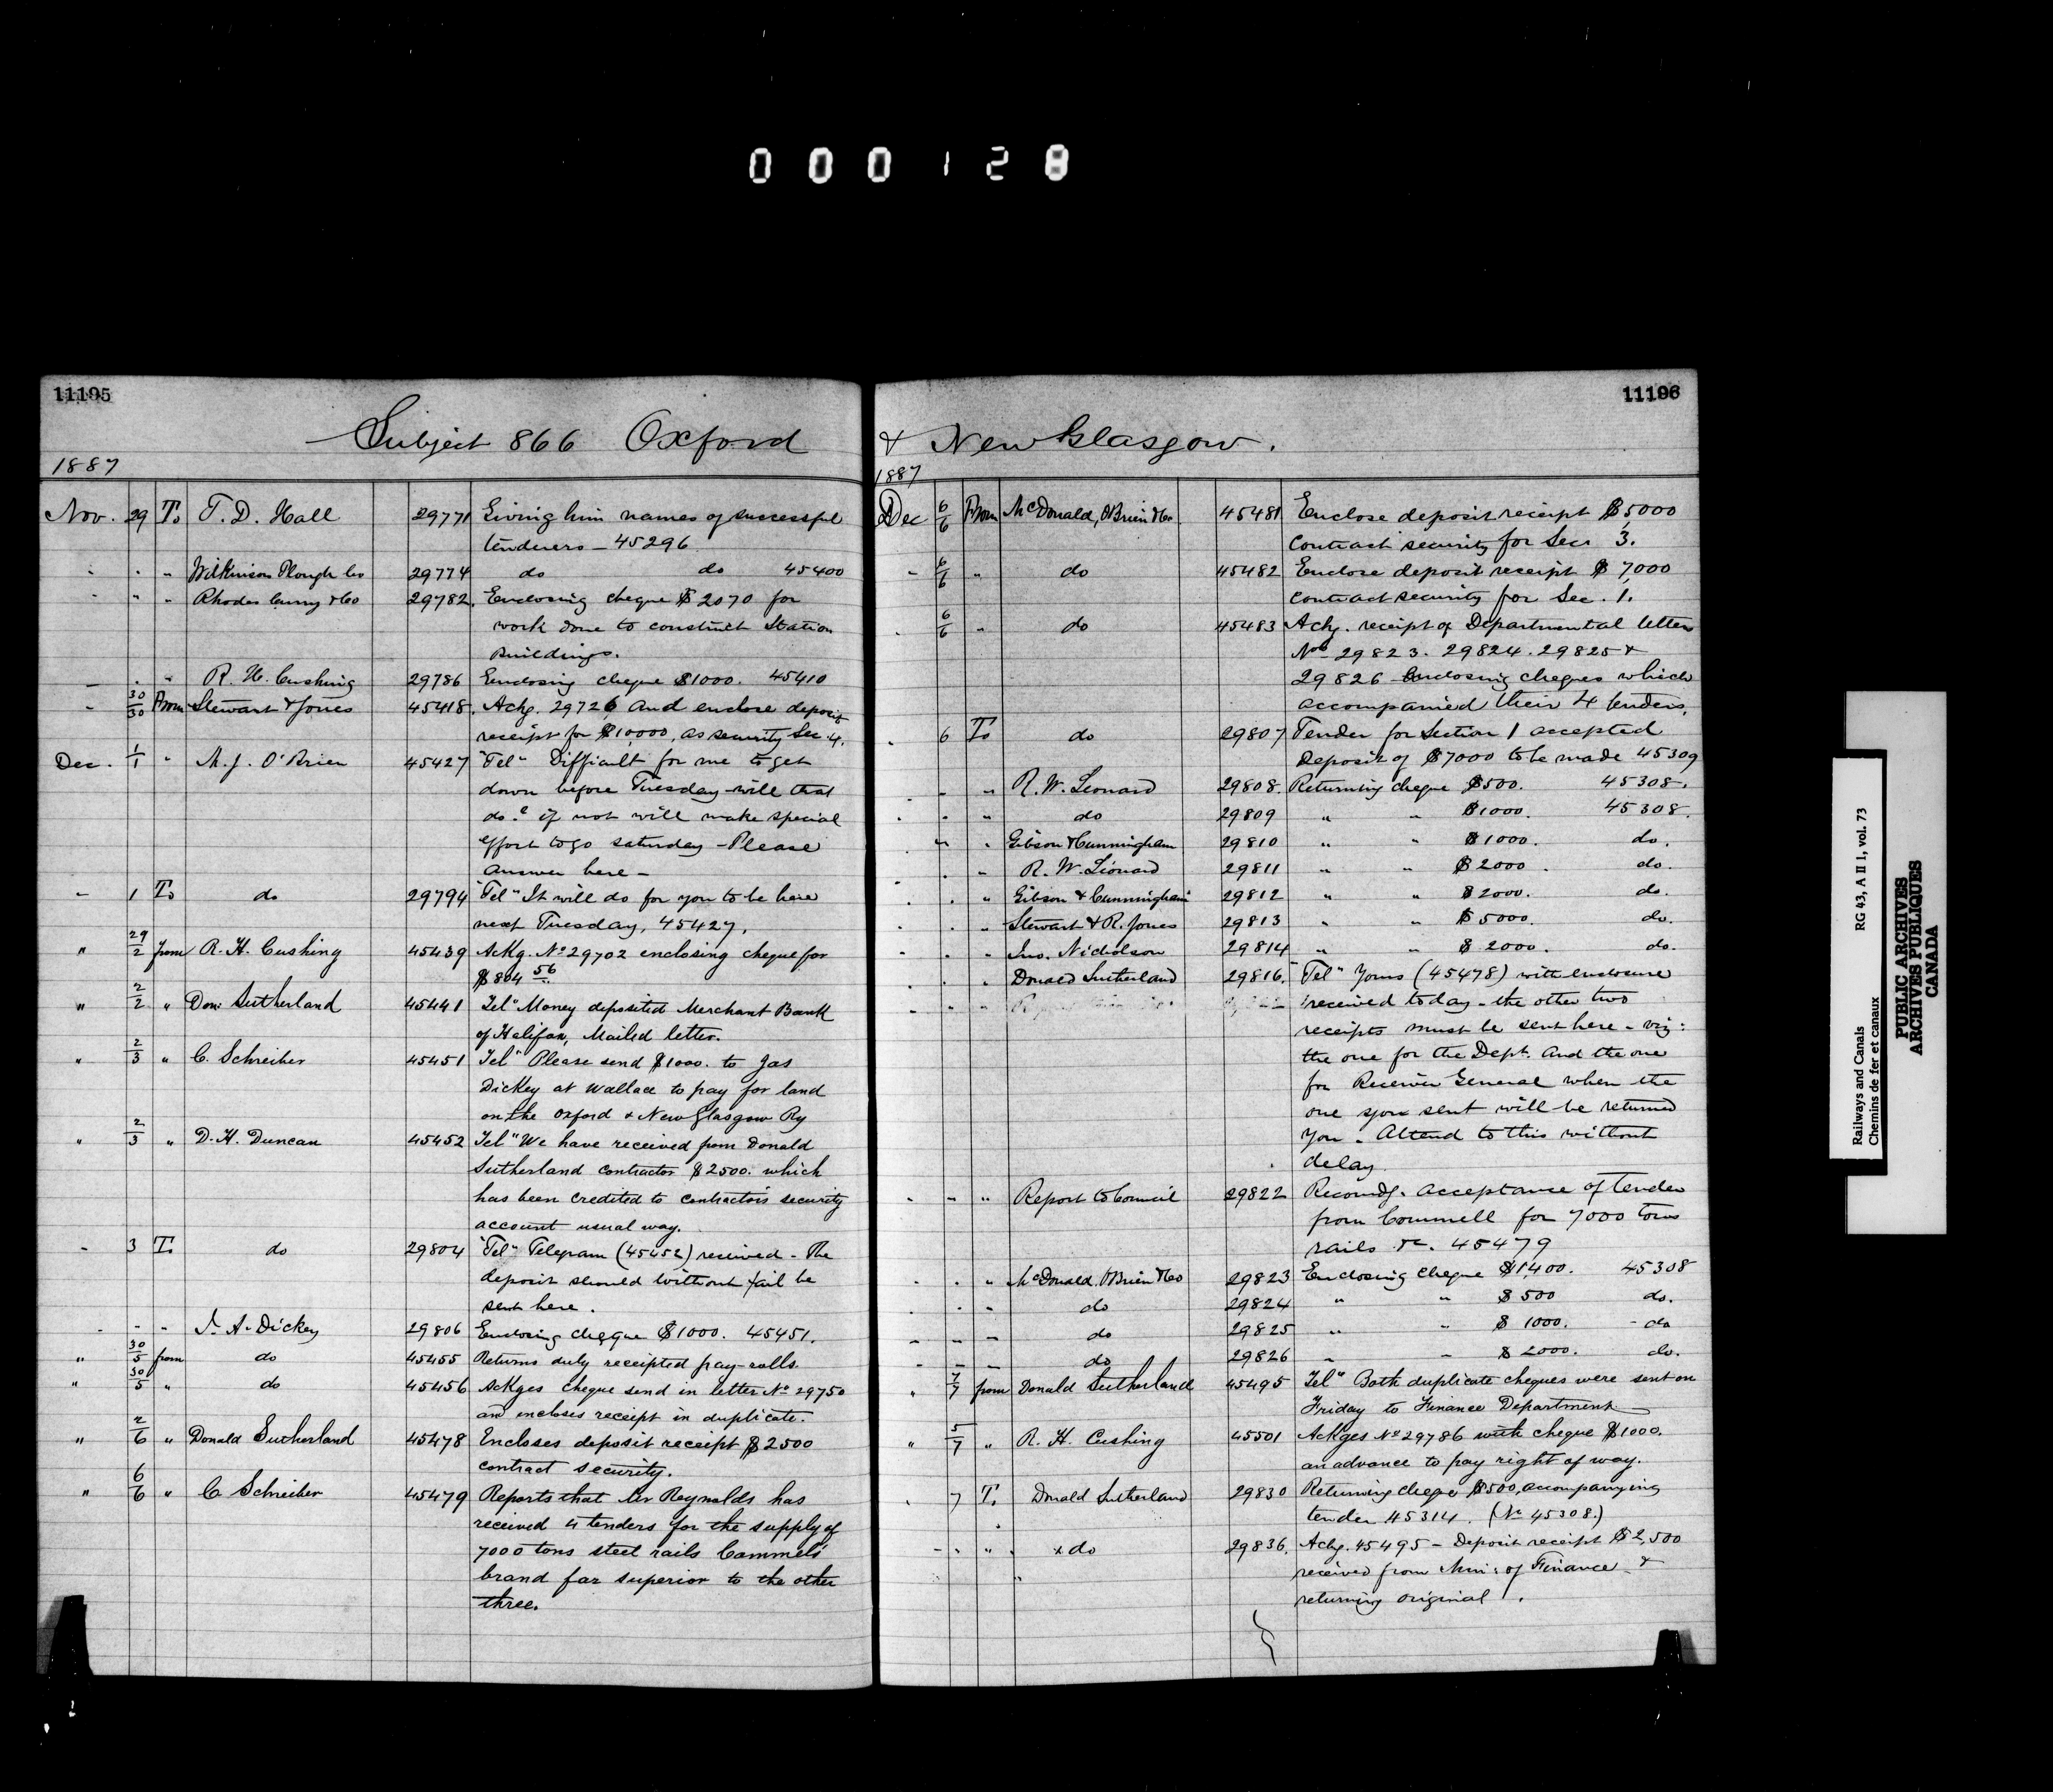 000128
11195
Subject 866 Oxford
1887
Nov. 29 To T. D. Hall 29771 Giving him names of successful
tenderers - 45296
- - " Wilkinson Plough Co 29774 do do 45400
- " " Rhodes Curry & Co 29782. Enclosing cheque $2070 for
work done to construct Station
Buildings.
- - " R. H. Cushing 29786 Enclosing cheque $1000. 45410
- 30/30 From Stewart & Jones 45418. Ackg. 29726 and enclose deposit
receipt for $10,000, as security Sec. 4.
Dec. 1/1 " M. J. O'Brien 45427 "Tel" Difficult for me to get
down before Tuesday - will that
do? if not will make special
effort to go saturday - Please
answer here -
- 1 To do 29794 "Tel" It will do for you to be here
next Tuesday, 45427.
" 29/2 from R. H. Cushing 45439 Ackg. No 29702 enclosing cheque for
$804 56.
" 2/2 " Don. Sutherland 45441 Tel" Money deposited Merchant Bank
of Halifax, Mailed letter.
" 2/3 " C. Schreiber 45451 Tel" Please send $1000. to Jas
Dickey at Wallace to pay for land
on the Oxford & New Glasgow Ry
" 2/3 " D. H. Duncan 45452 Tel" We have received from Donald
Sutherland contractor $2500. which
has been credited to contractors security
account usual way.
- 3 To do 29804 "Tel" Telegram (45452) received - The
deposit should without fail be
sent here.
- - " J. A. Dickey 29806 Enclosing cheque $1000. 45451.
" 30/5 from do 45455 Returns duly receipted pay-rolls.
" 30/5 " do 45456 Ackges cheque send in letter No 29750
and encloses receipt in duplicate.
" 2/6 " Donald Sutherland 45478 Encloses deposit receipt $2500
contract security.
" 6/6 " C Schreiber 45479 Reports that Mr Reynolds has
received 4 tenders for the supply of
7000 tons steel rails Cammels'
brand far superior to the other
three.
11196
& New Glasgow.
1887
Dec 6/6 From McDonald, O'Brien & Co. 45481 Enclose deposit receipt $5,000
contract security for Sec. 3.
- 6/6 " do 45482 Enclose deposit receipt $7,000
contract security for Sec. 1.
- 6/6 " do 45483 Ackg. receipt of Departmental letters
Nos 29823. 29824. 29825 &
29826 Enclosing cheques which
accompanied their 4 tenders.
- 6 To do 29807 Tender for Section 1 accepted
Deposit of $7000 to be made 45309
- - " R. W. Leonard 29808. Returning cheque $500. 45308.
- - " do 29809 " " $1000. 45308.
- " " Gibson & Cunningham 29810 " " $1000. do.
- - " R. W. Leonard 29811 " " $2000. do.
- - " Gibson & Cunningham 29812 " " $2000. do.
- - " Stewart & R. Jones 29813 " " $5000. do.
- - " Jno. Nicholson 29814 " " $2000. do.
- - " Donald Sutherland 29816. "Tel" Yours (45478) with enclosure
received today - the other two
receipts must be sent here - viz:
the one for the Dept. and the one
for Receiver General when the
one you sent will be returned
you. Attend to this without
delay.
- - " Report to Council 29822 Recomdg. acceptance of tender
from Cammell for 7000 tons
rails &c. 45479
- - " McDonald, O'Brien & Co 29823 Enclosing cheque $1,400. 45308
- - " do 29824 " " $500 do.
- - - do 29825 " " $1000. do
- - - do 29826 " " $2000. do.
" 7/7 from Donald Sutherland 45495 Tel" Both duplicate cheques were sent on
Friday to Finance Department
" 5/7 " R. H. Cushing 45501 Ackges No 29786 with cheque $1000.
an advance to pay right of way.
- 7 To Donald Sutherland 29830 Returning cheque $500, accompanying
tender 45314. (No 45308.)
- - " x do 29836. Ackg. 45495 - Deposit receipt $2,500
received from Min: of Finance &
returning original.
Railways and Canals RG 43, A II 1, vol. 73
Chemins de fer et canaux
PUBLIC ARCHIVES
ARCHIVES PUBLIQUES
CANADA